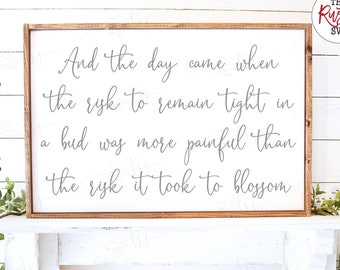 THE
And the day came when
the rysk to remain tight in
a bud was more painful than
the risk it took to blossom